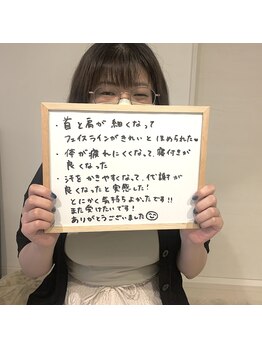 ・首と肩が細くなって
フェイスラインがきれいとほめられた♥
・体が疲れにくくなって、寝付きが
良くなった
・汗をかきやすくなって、代謝が
良くなったと実感した!
とにかく気持ちよかったです!!
また受けたいです!
ありがとうございました☺